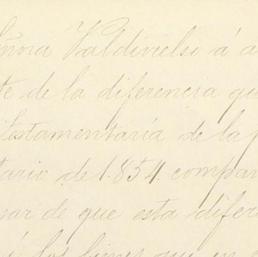 ñora Valdivielso á a
te de la diferencia qu
testamentaría de la p
tario de 1.854 compar
sar de que esta difer
á los bienes que en